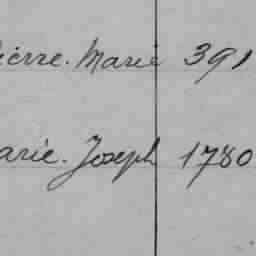 ierre. Marie 391
arie. Joseph 1780